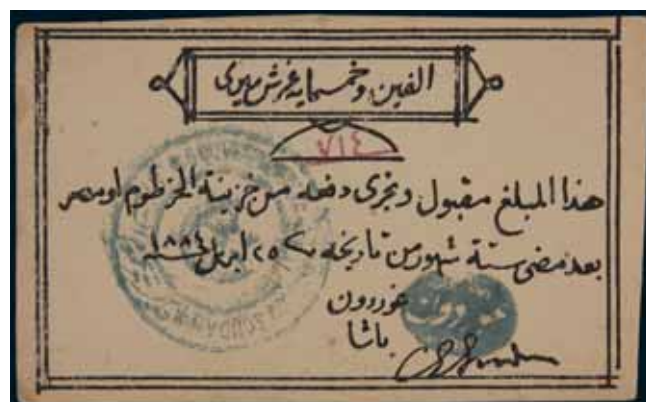 الفين وخمسماية غرش ميرى
٧١٤
هذا المبلغ مقبول ويجرى دفعه من خزينة الخرطوم او مصر
بعد مضى ستة شهور من تاريخه ٢٥ ابريل ١٨٨٤
غوردون
باشا
SOUDAN